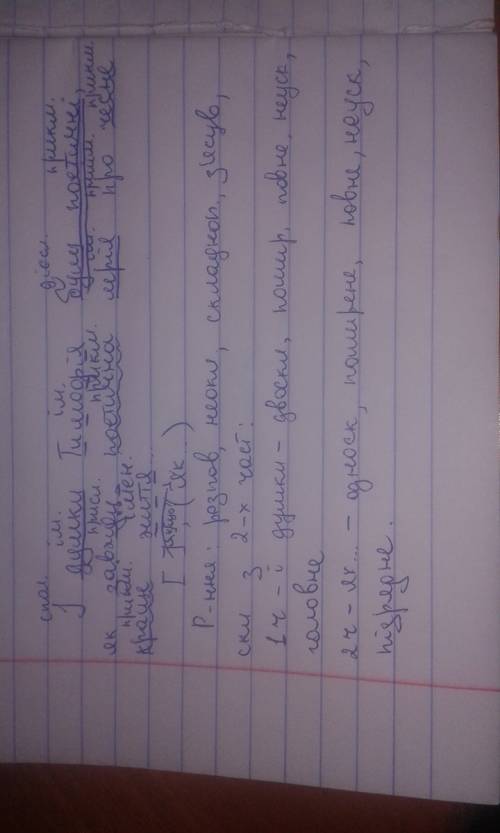 спол. ім. ім. дієсл. прикм.
І думки Тимофія були поетичні,
присл. прикм. ім. прийм. прикм.
як завжди поетична мрія про чесне
прикм. імен.
краще життя...
[ ], (як...)
Р-ння: розпов, неокл, складноп, з'ясув,
скл з 2-х част:
1ч - і думки - двоскл, пошир, повне, неуск,
головне
2ч - як... - односк, поширене, повне, неуск,
підрядне.